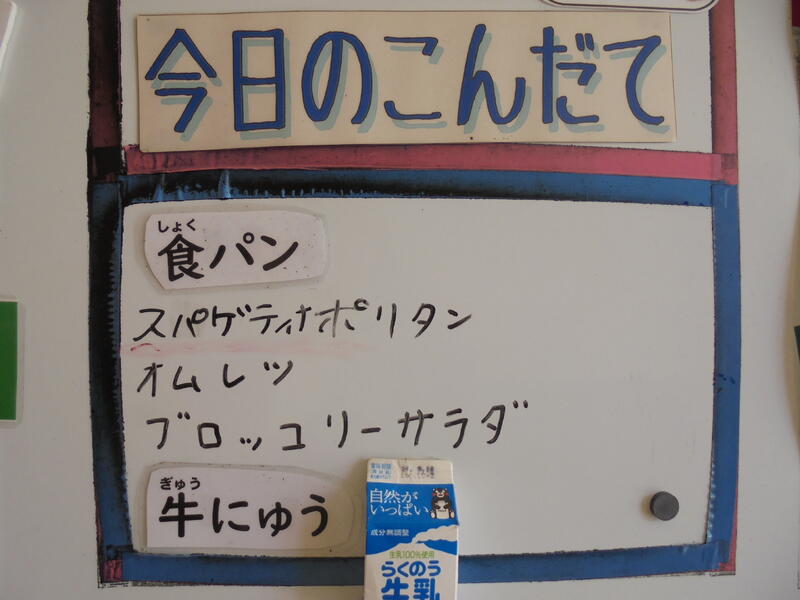 今日のこんだて
しょく
食パン
スパゲティナポリタン
オムレツ
ブロッコリーサラダ
ぎゅう
牛にゅう
自然が
いっぱい
成分無調整
生乳100%使用
らくのう
牛乳